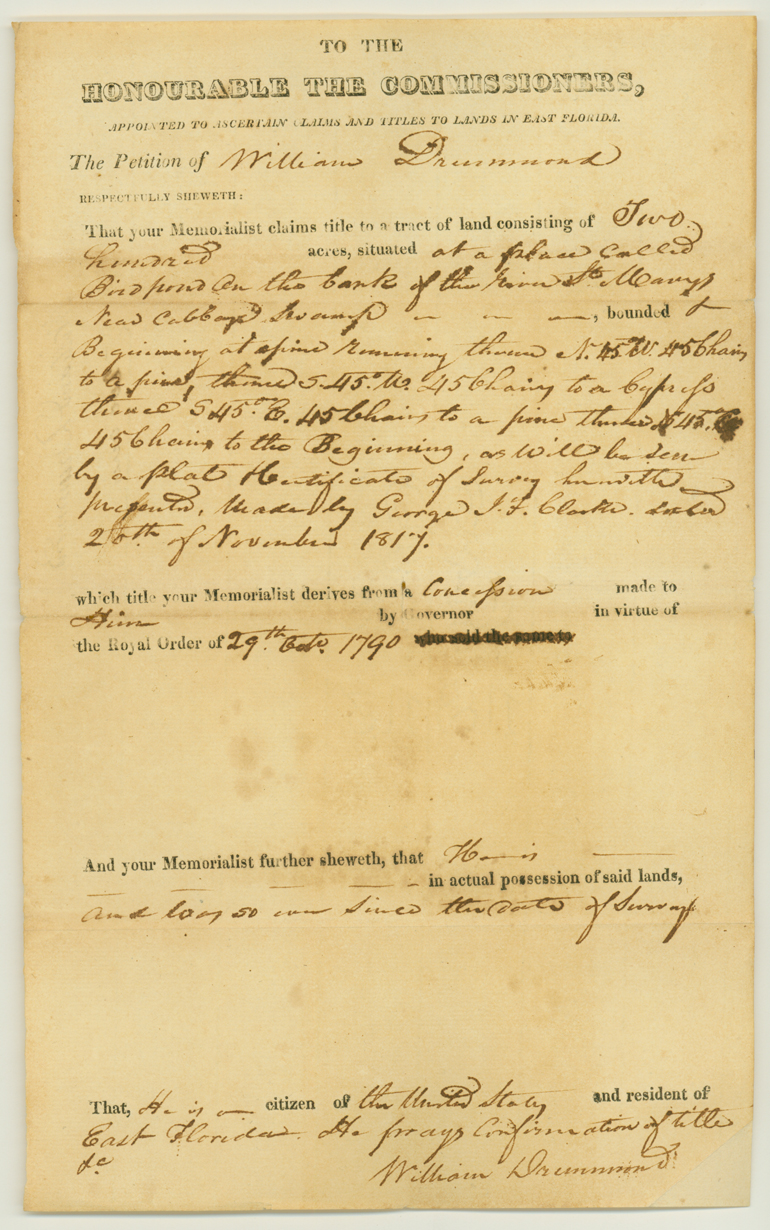 TO THE
HONOURABLE THE COMMISSIONERS,
APPOINTED TO ASCERTAIN CLAIMS AND TITLES TO LANDS IN EAST FLORIDA.
The Petition of William Drummond
RESPECTFULLY SHEWETH:
That your Memorialist claims title to a tract of land consisting of Two
hundred acres, situated at a place Called
Bird pond On the bank of the River St. Marys
Near Cabbage Swamp — — —, bounded &
Beginning at a pine running thence N. 45° W. 45 Chains
to a pine, thence S. 45° W. 45 Chains to a Cypress
thence S 45° E. 45 Chains to a pine thence 45°
45 Chains to the Beginning, as Will be Seen
by a plat & Certificate of Survey herewith
presented, Made by George J. F. Clarke. dated
20th of November 1817.
which title your Memorialist derives from a Concession made to
Him by Governor in virtue of
the Royal Order of 29th Octr. 1790 who said the same to
And your Memorialist further sheweth, that He is —
— — — — - in actual possession of said lands,
and has so ever Since the date of Survey
That, He is a citizen of the United States and resident of
East Florida. He prays Confirmation of title
&c
William Drummond